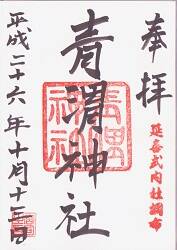 奉拝
延喜式内社調布
青渭神社
平成二十六年十月十三日